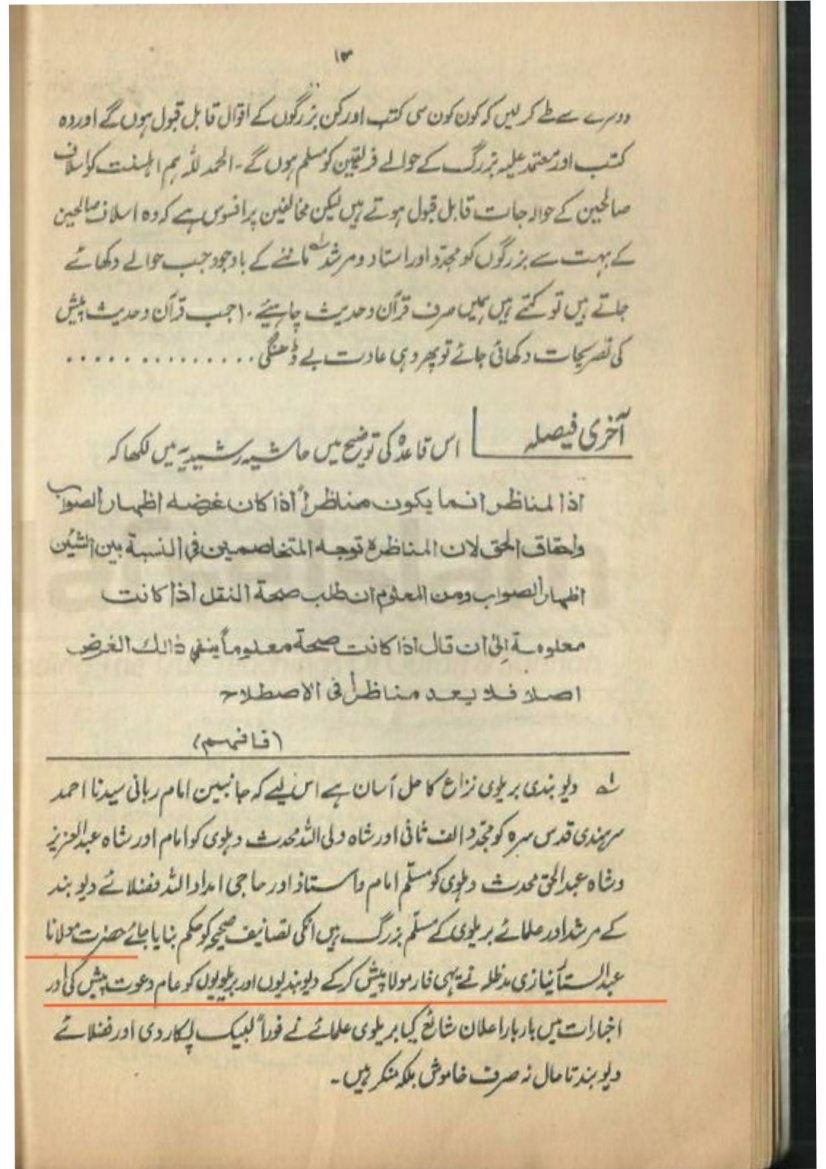 ۱۳
دوسرے سے طے کر لیں کہ کون کون سی کتب اور کن بزرگوں کے اقوال قابل قبول ہوں گے اور وہ
کتب اور معتمد علیہ بزرگ کے حوالے فریقین کو مسلم ہوں گے ۔ الحمد للہ ہم اہلسنت کو اسلاف
صالحین کے حوالہ جات قابل قبول ہوتے ہیں لیکن مخالفین پر افسوس ہے کہ وہ اسلاف صالحین
کے بہت سے بزرگوں کو مجدّد اور استاد و مرشد لہ ماننے کے باوجود جب حوالے دکھائے
جاتے ہیں تو کہتے ہیں ہمیں صرف قرآن و حدیث چاہیئے ۔ اجب قرآن و حدیث پیش
کی تصریحات دکھائی جائے تو پھر وہی عادت بے ڈھنگی . . . . . . . . . . . . . .
آخری فیصلہ اس قاعدہ کی توضیح میں حاشیہ رشیدیہ میں لکھا کہ
اذا لمناظر انما يكون مناظراً اذا كان غرضه اظهار الصواب
واحقاق الحق لان المناظرة توجه المتخاصمين فى النسبة بين الشيئن
اظهار الصواب ومن المعلوم ان طلب صحة النقل اذا كانت
معلومة إلى ان قال اذا كانت صحة معلوماً ينفي ذالك الغرض
اصلا فلا يعد مناظراً فى الاصطلاح
(فافہم)
لہ دیوبندی بریلوی نزاع کا حل آسان ہے اس لیے کہ جانبین امام ربانی سیدنا احمد
سرہندی قدس سرہ کو مجدّد الف ثانی اور شاہ ولی اللہ محدث دہلوی کو امام اور شاہ عبدالعزیز
و شاہ عبدالحق محدث دہلوی کو مسلّم امام و استاذ اور حاجی امداد اللہ فضلائے دیوبند
کے مرشد اور علمائے بریلوی کے مسلّم بزرگ ہیں انکی تصانیف صحیحہ کو حکم بنایا جائے حضرت مولانا
عبدالستار نیازی مدظلہ نے یہی فارمولا پیش کر کے دیوبندیوں اور بریلویوں کو عام دعوت پیش کی اور
اخبارات میں بار بار اعلان شائع کیا بریلوی علمائے نے فوراً لبیک پکار دی اور فضلائے
دیوبند تا حال نہ صرف خاموش بلکہ منکر ہیں ۔